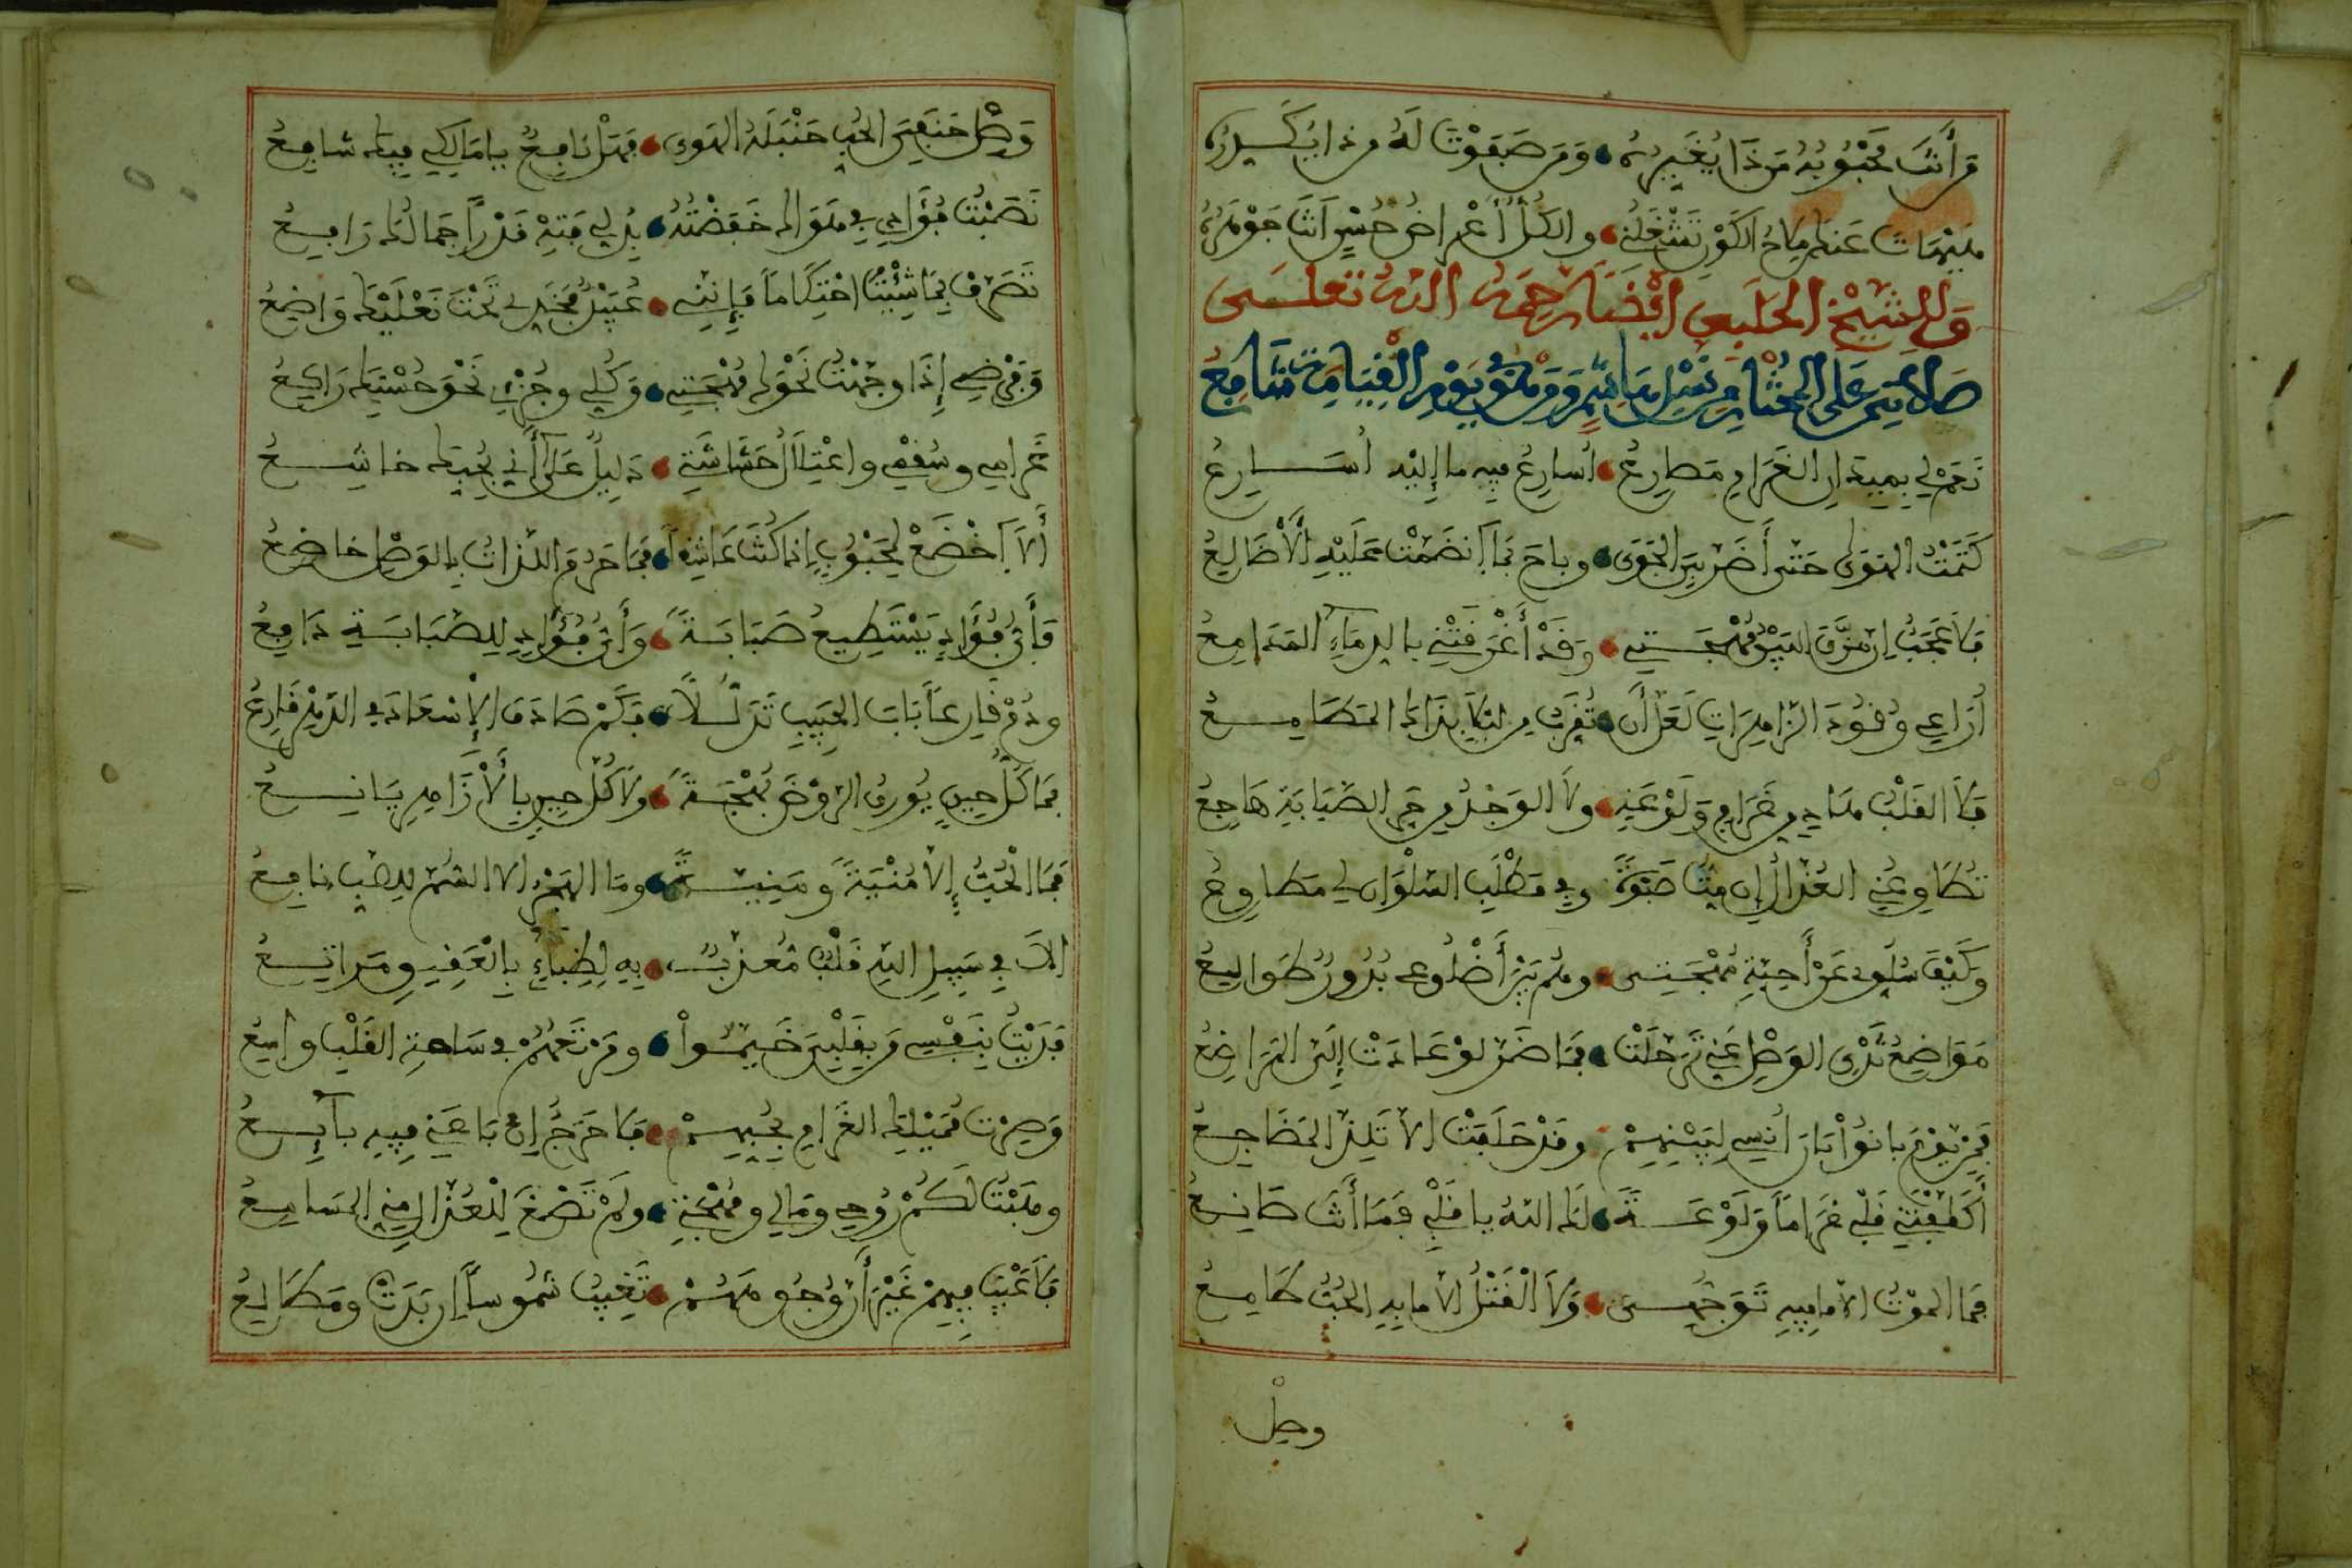 من أنت محبوبه من ذا يغيره ومن صفوت له من ذا يكدره
هيهات عنك ملاح الكون تشغلني والكل أعراض حسن أنت جوهره
وللشيخ الحلبي أيضا رحمه الله تعلى
صلاتي على المختار من نسل هاشم ومن هو في يوم القيامة شافع
نعم لي بميدان الغرام مصارع أسارع فيه ما إليه أسارع
كتمت الهوى حتى أضر بي الجوى وباح بما انضمت عليه الأضالع
فلا عجب إن مزق البين مهجتي وقد أغرقتني بالدماء المدامع
أراعي وفود الزاهرات لعل أن تقرب من لبلى بذاك المطامع
فلا القلب هاد من غرام ولوعتي ولا الوجد من حر الصبابة هاجع
تطاوعني العذال إن مت صبوة وفي مطلب السلوان لي مطاوع
وكيف سلوي عن أحبة مهجتي وهم بين أضلوعي بدور طوالع
مواضع ثدي الوصل عني ترحلت فما ضر لو عادت إلي المراضع
فمن يوم بانوا بان أنسي لبينهم وقد حلفت ألا تلذ المضاجع
أكلفتني قلبي غراما ولوعة لك الله يا قلبي فما أنت صانع
فما الموت إلا ما فيه توجهي ولا القتل إلا ما به الحب طامع
وصل
وصل حنبعي الحب حنبله الهوى فهل نافع يا مالكي فيك شافع
نصبت فؤادي في هواك خفضته بذلي فته قدرا جمالك رافع
تصرف بما شئت احتكاما فإنني عبيد بخدي تحت نعليك واضع
وفرضي إذا وجهت نحوك مهجتي وكلي وجزئي نحو حسنك راكع
غرامي وسقمي واعتلال حشاشتي دليل على أني بحبك خاشع
ألا اخضع لمحبوب إذا كنت عاشقا فما حرم اللذات بالوصل خاضع
فأي فؤاد يستطيع صبابة وأي فؤاد للصبابة دافع
ودم قارعا باب الحبيب تذللا فكم صادف الإسعاد في الدهر قارع
فما كل حين يورق الروض بهجة ولا كل حين بالأزاهر يانع
فما الحب إلا منية ومنية وما الهجر إلا السم للصب نافع
ألا في سبيل الله قلب معذب به لظباء بالعقيق مراتع
فديت بنفسي من بقلبي خيموا ومرتعهم في ساحة القلب واسع
وصرت مميلك الغرام بحبهم فلا حرج إن باعني فيه بائع
وهبت لكم روحي ومالي ومهجتي ولم تصغ للعذال مني المسامع
فلا عيب فيهم غير أن وجوههم تغيب شموسا إن بدت ومطالع